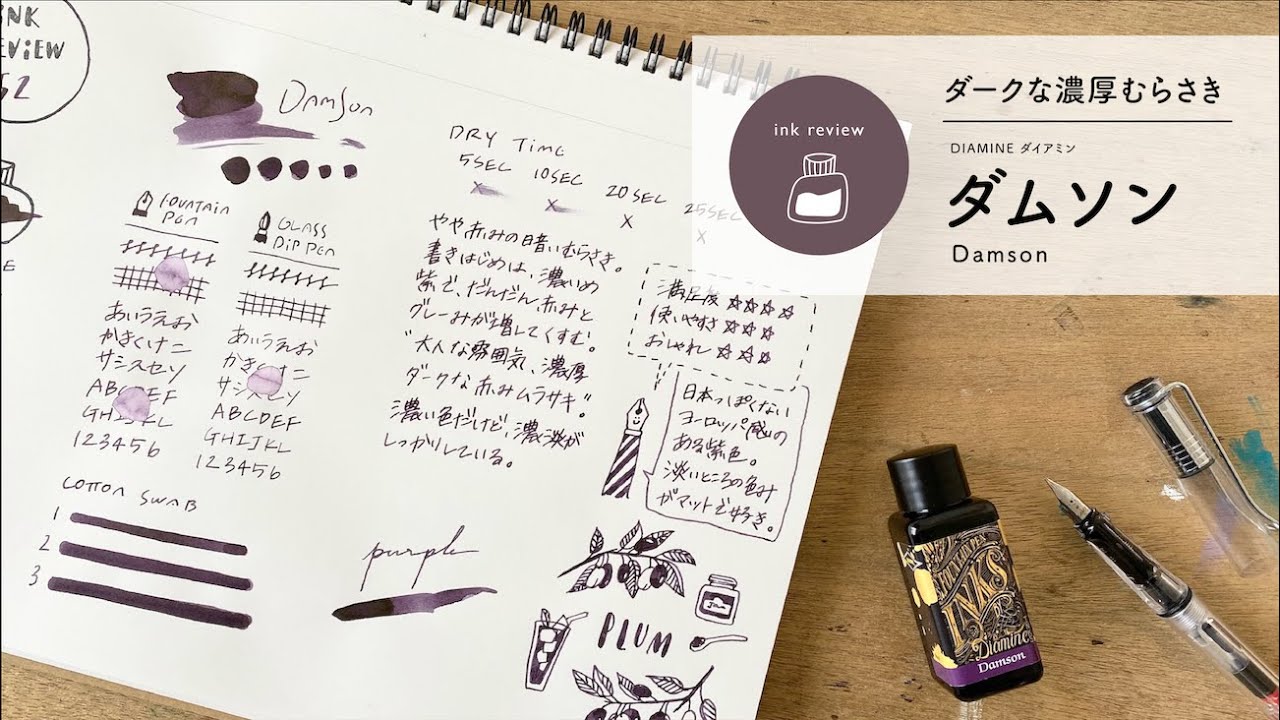 INK
REVIEW
52
Damson
FOUNTAIN
PEN
GLASS
DIP PEN
あいうえお
かきくけこ
サシスセソ
ABCDEF
GHIJKL
123456
あいうえお
かきくけこ
サシスセソ
ABCDEF
GHIJKL
123456
COTTON SWAB
1
2
3
DRY TIME
5SEC 10SEC 20SEC 25SEC
X X X X
やや赤みの暗いむらさき。
書きはじめは、濃いめ
紫で、だんだん赤みと
グレーみが増してくすむ。
"大人な雰囲気、濃厚
ダークな赤みムラサキ"。
濃い色だけど、濃淡が
しっかりしている。
満足度 ☆☆☆☆
使いやすさ ☆☆☆
おしゃれ ☆☆☆
日本っぽくない
ヨーロッパ感の
ある紫色。
淡いところの色み
がマットで好き。
purple
PLUM
Jam
ink review
ダークな濃厚むらさき
DIAMINE ダイアミン
ダムソン
Damson
FOUNTAIN PEN
INKS
Diamine
Damson